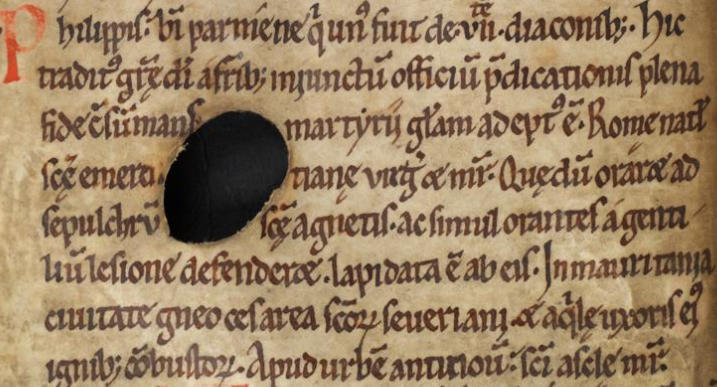 Philippis: bı̄ parmiene q̇ unꝰ fuit de vii^te diaconib;. Hic
tradit᷒ gr̄ę dı̄i a frīb; iniunctū officiū p̄dicationis plena
fide c̄sūmans martyrii gl̄am adept᷒ ē. Rome natl̄
sc̄ę emerti tianę virḡ & mr̄. Quę dū oraret ad
sepulchrū sc̄ę agnetis. ac simul orantes a genti
liū lesione defenderet. lapidata ē ab eis. In mauritania
ciuitate gneo cesarea sc̄oꝝ seueriani & aq̇lę uxoris eiꝰ
ignib; cōbustoꝝ. Apud urbē antinoū: sc̄i ascle mr̄.